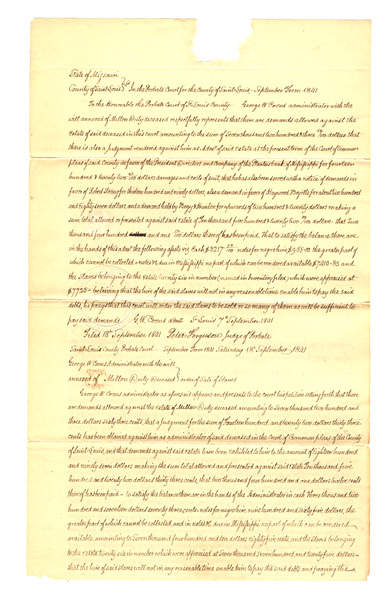 State of Missouri
County of Saint Louis } In the Probate Court for the County of Saint Louis - September Term 1841
To the Honorable the Probate Court of St Louis County George W Coons administrator with the
will annexed of Milton Duty deceased respectfully represents that there are demands allowed against the
estate of said deceased in this court amounting to the sum of Seven thousand two hundred & three Dollars that
there is also a judgment rendered against him as Admr of said estate at the present term of the Court of Common
pleas of said County in favor of the President Directors and Company of the Planters bank of Mississippi for fourteen
hundred & twenty two Dollars damages and costs of suit, that he has also been served with a notice of demands in
favor of hundred and ninety dollars, also a demand in favor of for about two hundred
and Eighty seven dollars and a demand held by & of four hundred & twenty dollars making a
sum total allowed or presented against said estate of Ten thousand five hundred & twenty two Dollars - that Two
thousand four hundred and one dollars there of has been paid, That to satisfy the balance there are
in the hands of this admr the following assets viz Cash $3217 notes for negro hire $965 - the greater part of
which cannot be collected - notes &c due in Mississippi no part of which can be rendered available $7410.85 and
the slaves belonging to the estate twenty six in number (named in Inventory filed) which were appraised at
$7725 - believing that the hire of the said slaves will not in any reasonable time enable him to pay the said
debt, he prays that this court will order the said slaves to be sold or so many of them as will be sufficient to
pay said demands. G W Coons admr St Louis 7th September 1841
Filed 18th September 1841 Peter Ferguson Judge of Probate
Saint Louis County Probate Court - September Term 1841 Saturday 18th September 1841
George W Coons Administrator with the will
annexed of Milton Duty Deceased } order of Sale of Slaves
George W Coons administrator as aforesaid appears and presents to the court his petition setting forth that there
are demands allowed against the estate of Milton Duty deceased amounting to Seven thousand two hundred and
three dollars sixty three cents, that a judgment for the sum of Fourteen hundred and twenty two dollars thirty three
cents has been obtained against him as administrator of said deceased in the Court of Common pleas of the County
of Saint Louis, and that demands against said estate have been exhibited to him to the amount of Eighteen hundred
and ninety seven dollars, making the sum total allowed and presented against said estate Ten thousand five
hundred and twenty two dollars thirty three cents, that two thousand four hundred and one dollars twelve cents
thereof has been paid - to satisfy the balance there are in the hands of the Administrator in cash Three thousand two
hundred and seventeen dollars twenty three cents, notes for negro hire, nine hundred and sixty five dollars, the
greater part of which cannot be collected, and in notes &c due in Mississippi no part of which can be rendered
available, amounting to Seven thousand four hundred and ten dollars eighty five cents, and the slaves belonging
to the estate twenty six in number which were appraised at Seven thousand Seven hundred and twenty five dollars -
that the hire of said slaves will not in any reasonable time enable him to pay the said debts and praying the